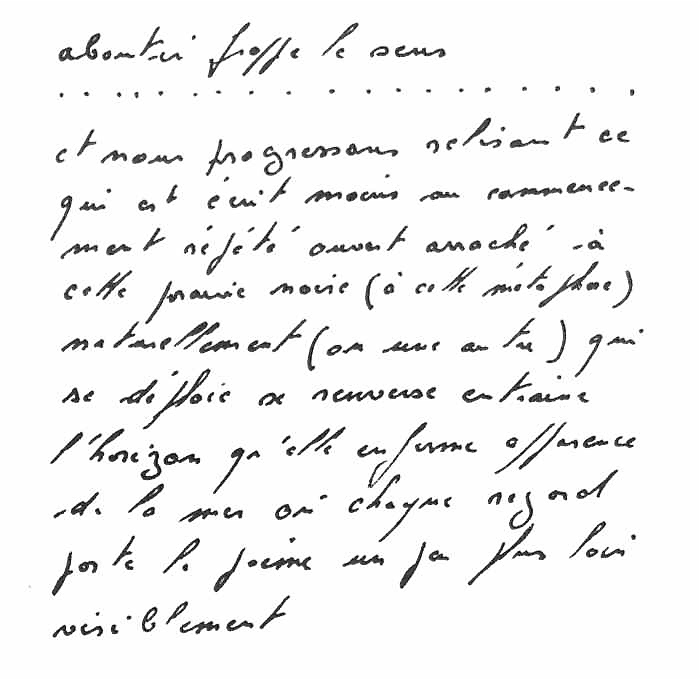 aboutir frappe le sens
. . . . . . . . . . . . . . . . . . . .
et nous progressons relisant ce
qui est écrit moins au commence-
ment répété ouvert arraché à
cette prairie noire (à cette métaphore)
naturellement (ou une autre) qui
se déploie se renverse entraîne
l'horizon qu'elle enferme apparence
de la mer où chaque regard
porte le poème un peu plus loin
visiblement